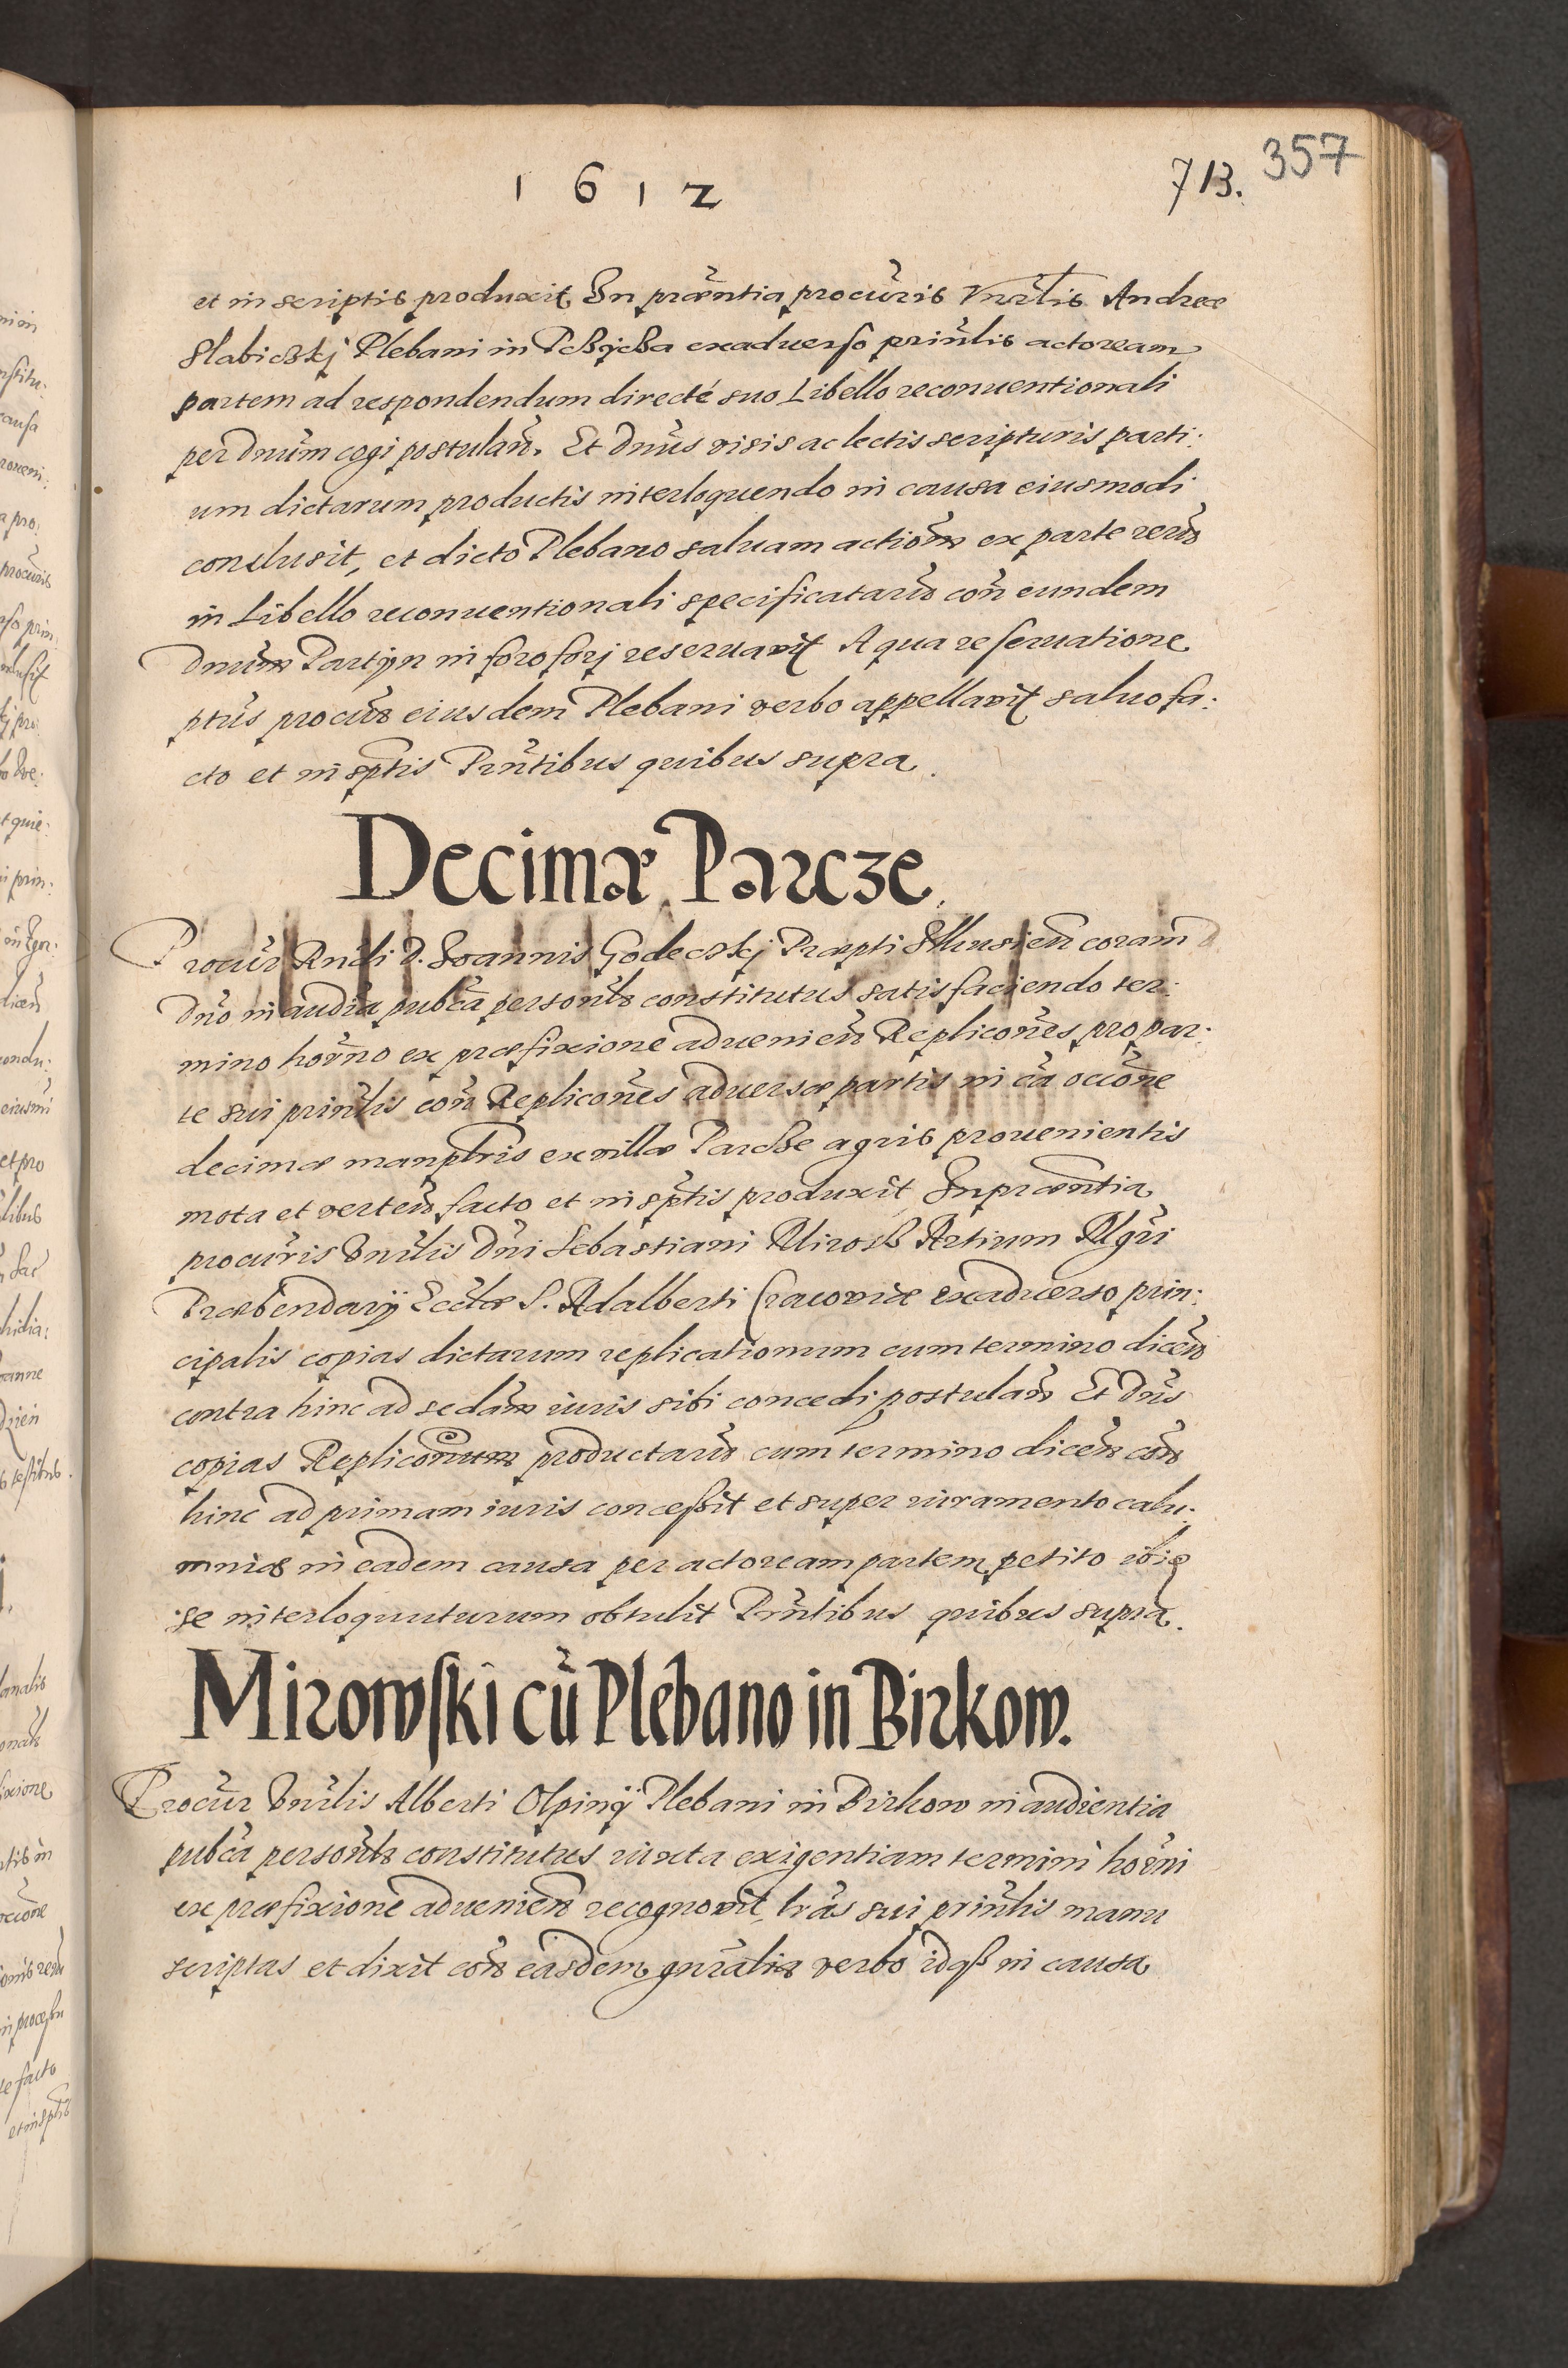 1612
713. 357
et in scriptis produxit In præntia procuris Vnrlis Andreæ
Slabiczkj Plebani in Pczÿcza exaduerso prinlis actoream
partem ad respondendum directé suo Libello reconuentionali
per Dnum cogi postulan. Et Dnus visis ac lectis scripturis parti:
um dictarum productis interloquendo in causa eiusmodi
conclusit, et dicto Plebano saluam actionem ex parte rerum
in Libello reconuentionali specificatarum con eundem
Dnum Partÿn in foro forj reseruauit A qua reseruatione
ptus procur eiusdem Plebani verbo appellauit saluo fa:
cto et in sptis Prntibus quibus supra.
Decimæ Parcze.
Procur Rndi D. Joannis Godeczkj Præpti Ilkusien coram
Dno in audia pubca personlr constitutus satisfaciendo ter:
mino horno ex præfixione aduenien Replicones pro par:
te sui prinlis con Replicones aduersæ partis in ca occione
decimæ manplris ex villæ Parcze agris prouenientis
mota et verten facto et in sptis produxit In præntia
procuris Vnrlis Dni Sebastiani Mirosz Artium Mgri
Præbendarÿ Eccliæ S. Adalberti Cracouiæ exaduerso prin:
cipalis copias dictarum replicationum cum termino dicen
contra hinc ad sedam iuris sibi concedi postulan Et Dnus
copias Repliconum productarum cum termino dicen con
hinc ad primam iuris concessit et super iuramento calu:
mniæ in eadem causa per actoream partem petito ibiq
se interloquuturum obtulit Prntibus quibus supra.
Mirowski cu Plebano in Birkow.
Procur Vnrlis Alberti Olpinÿ Plebani in Birkow in audientia
pubca personlr constitutus iuxta exigentiam termini horni
ex præfixione aduenien recognouit lras sui prinlis manu
scriptas et dixit con easdem gnralia verbo idqz in causa